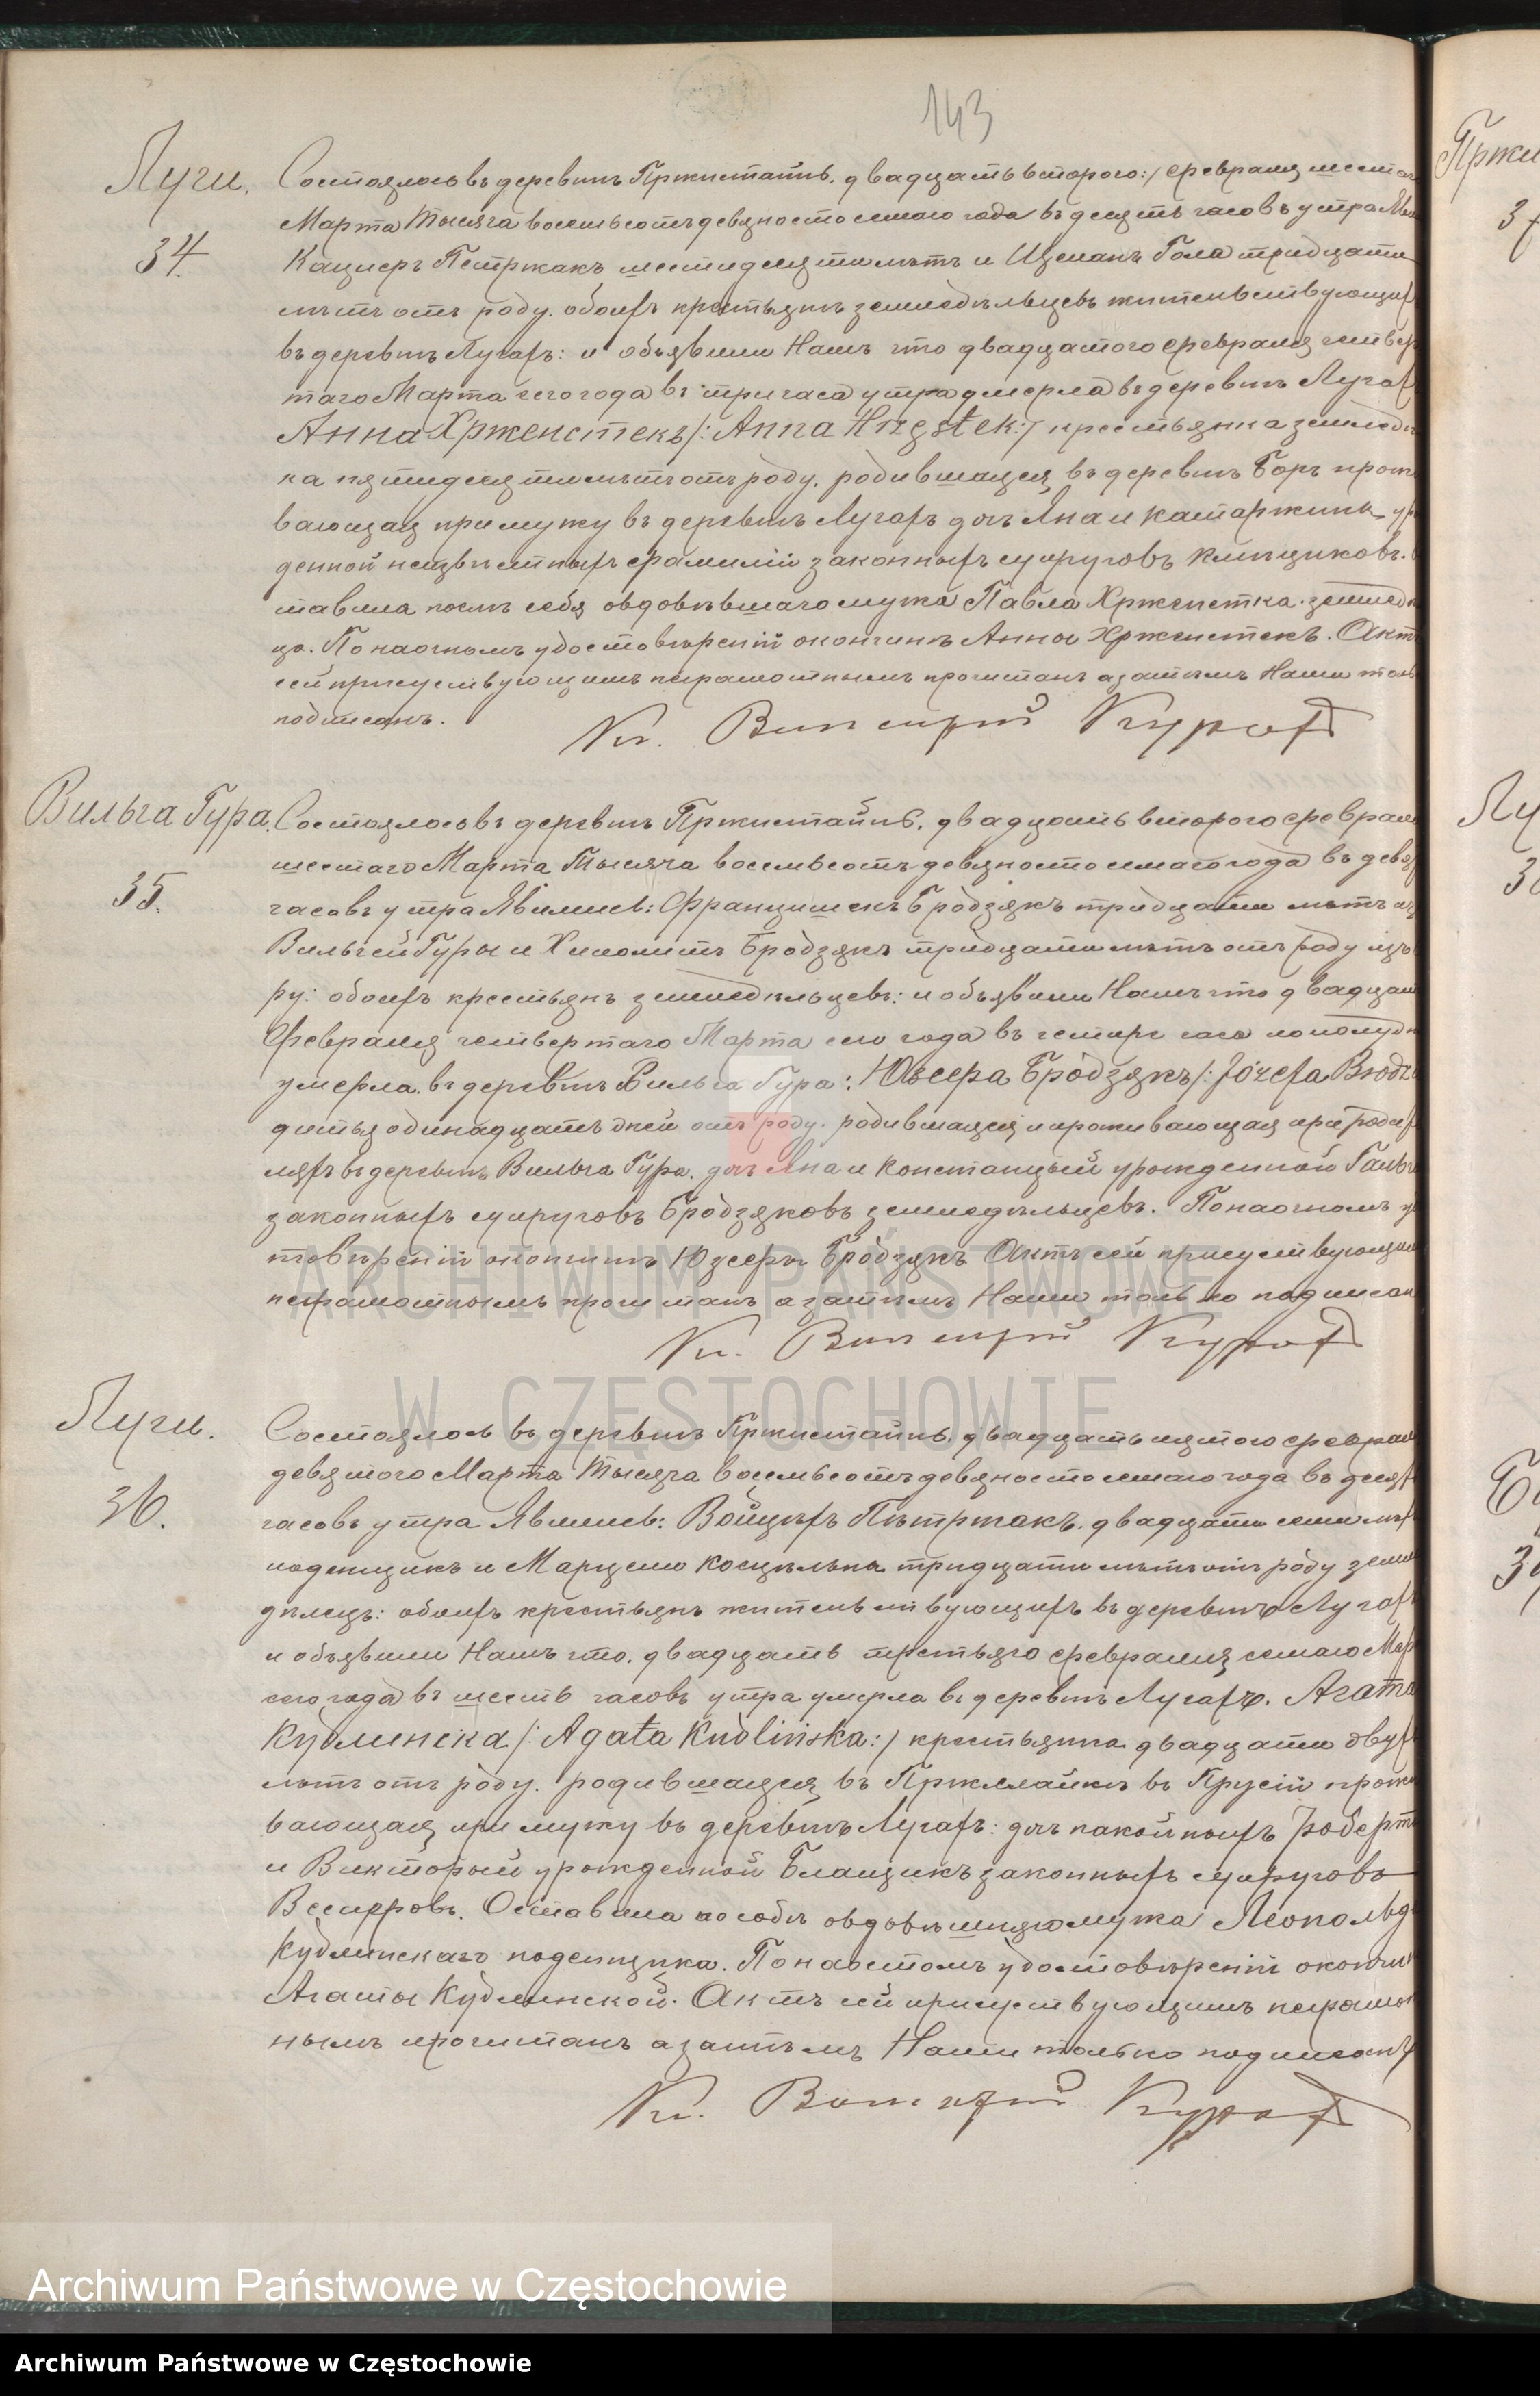 143
Луги.
34.
Состоялось въ деревнѣ Пржистайнь, двадцать втораго :/ февраля шестаго
Марта Тысяча восемьсотъ девяносто семаго года въ десять часовъ утра Яви
Кацперъ Петржакъ шестидесяти лѣтъ и Щепанъ Гола тридцати
лѣтъ отъ роду. обоихъ крестьянъ земледѣльцевъ жительствующихъ
въ деревнѣ Лугахъ: и объявили Намъ что двадцатого февраля четвер
таго Марта сего года въ три часа утра умерла въ деревнѣ Лугахъ
Анна Хрженстекъ /: Anna Hrzęstek :/ крестьянка земледѣ
ка пятидесяти лѣтъ отъ роду. родившаяся въ деревнѣ Боръ прожи
вающая при мужу въ деревнѣ Лугахъ дочь Яна и Катаржины ур
денной неизвѣстныхъ фамилій законныхъ супруговъ Клыщиковъ.
тавила послѣ себя овдовѣвшаго мужа Павла Хрженстка. земледѣ
ца. По наочномъ удостовѣреніи окончинѣ Анны Хрженстекъ. Актъ
сей присуствующимъ неграмотнымъ прочитанъ а затѣмъ Нами толь
подписанъ.
Кс. Викентій
Вильга Гура.
35.
Состоялось въ деревнѣ Пржистайнь, двадцать второго февраля
шестаго Марта Тысяча восемьсотъ девяносто семаго года въ девя
часовъ утра Явились: Францишекъ Бродзякъ тридцати лѣтъ изъ
Вильгей Гуры и Бродзякъ тридцати лѣтъ отъ роду изъ
ру: обоихъ крестьянъ земледѣльцевъ: и объявили Намъ что двадцат
Февраля четвертаго Марта сего года въ четыре часа пополудн
умерла въ деревнѣ Вильга Гура: Юзефа Бродзякъ /: Józefa Brodz
дитья одинадцать дней отъ роду. родившаяся и проживающая при родит
ляхъ въ деревнѣ Вильга Гура. дочь Яна и Констанцый урожденной
законныхъ супруговъ Бродзяковъ земледѣльцевъ. По наочномъ уд
товѣреніи окончинѣ Юзефы Бродзякъ Актъ сей присуствующим
неграмотнымъ прочитанъ а затѣмъ Нами только подписан
Кс. Викентій
Луги.
36.
Состоялось въ деревнѣ Пржистайнь, двадцать пятого февраля
девятого Марта Тысяча восемьсотъ девяносто семаго года въ десят
часовъ утра Явились: Войцѣхъ Пѣтржакъ. двадцати семи лѣт
поденщикъ и Марцели Косцѣльна тридцати лѣтъ отъ роду земле
дѣлецъ: обоихъ крестьянъ жительствующихъ въ деревнѣ Лугахъ
и объявили Намъ что. двадцать третьяго февраля семаго Мар
сего года въ шесть часовъ утра умерла въ деревнѣ Лугахъ. Агата
Кудлинска /: Agata Kudlińska :/ крестьянка двадцати двухъ
лѣтъ отъ роду. родившаяся въ въ Прусіи прожи
вающая при мужу въ деревнѣ Лугахъ: дочь покойныхъ Роберта
и Викторый урожденной Блащикъ законныхъ супруговъ
Оставила по собѣ овдовѣвшяго мужа Леопольда
Кудлинскаго поденщика. По наостомъ удостовѣреніи окончин
Агаты Кудлинской. Актъ сей присуствующимъ неграмот
нымъ прочитанъ а затѣмъ Нами только подписанъ
Кс. Викентій
Пржи
37
Лу
ARCHIWUM PAŃSTWOWE
W CZĘSTOCHOWIE
Archiwum Państwowe w Częstochowie
Archiwum Państwowe w Częstochowie